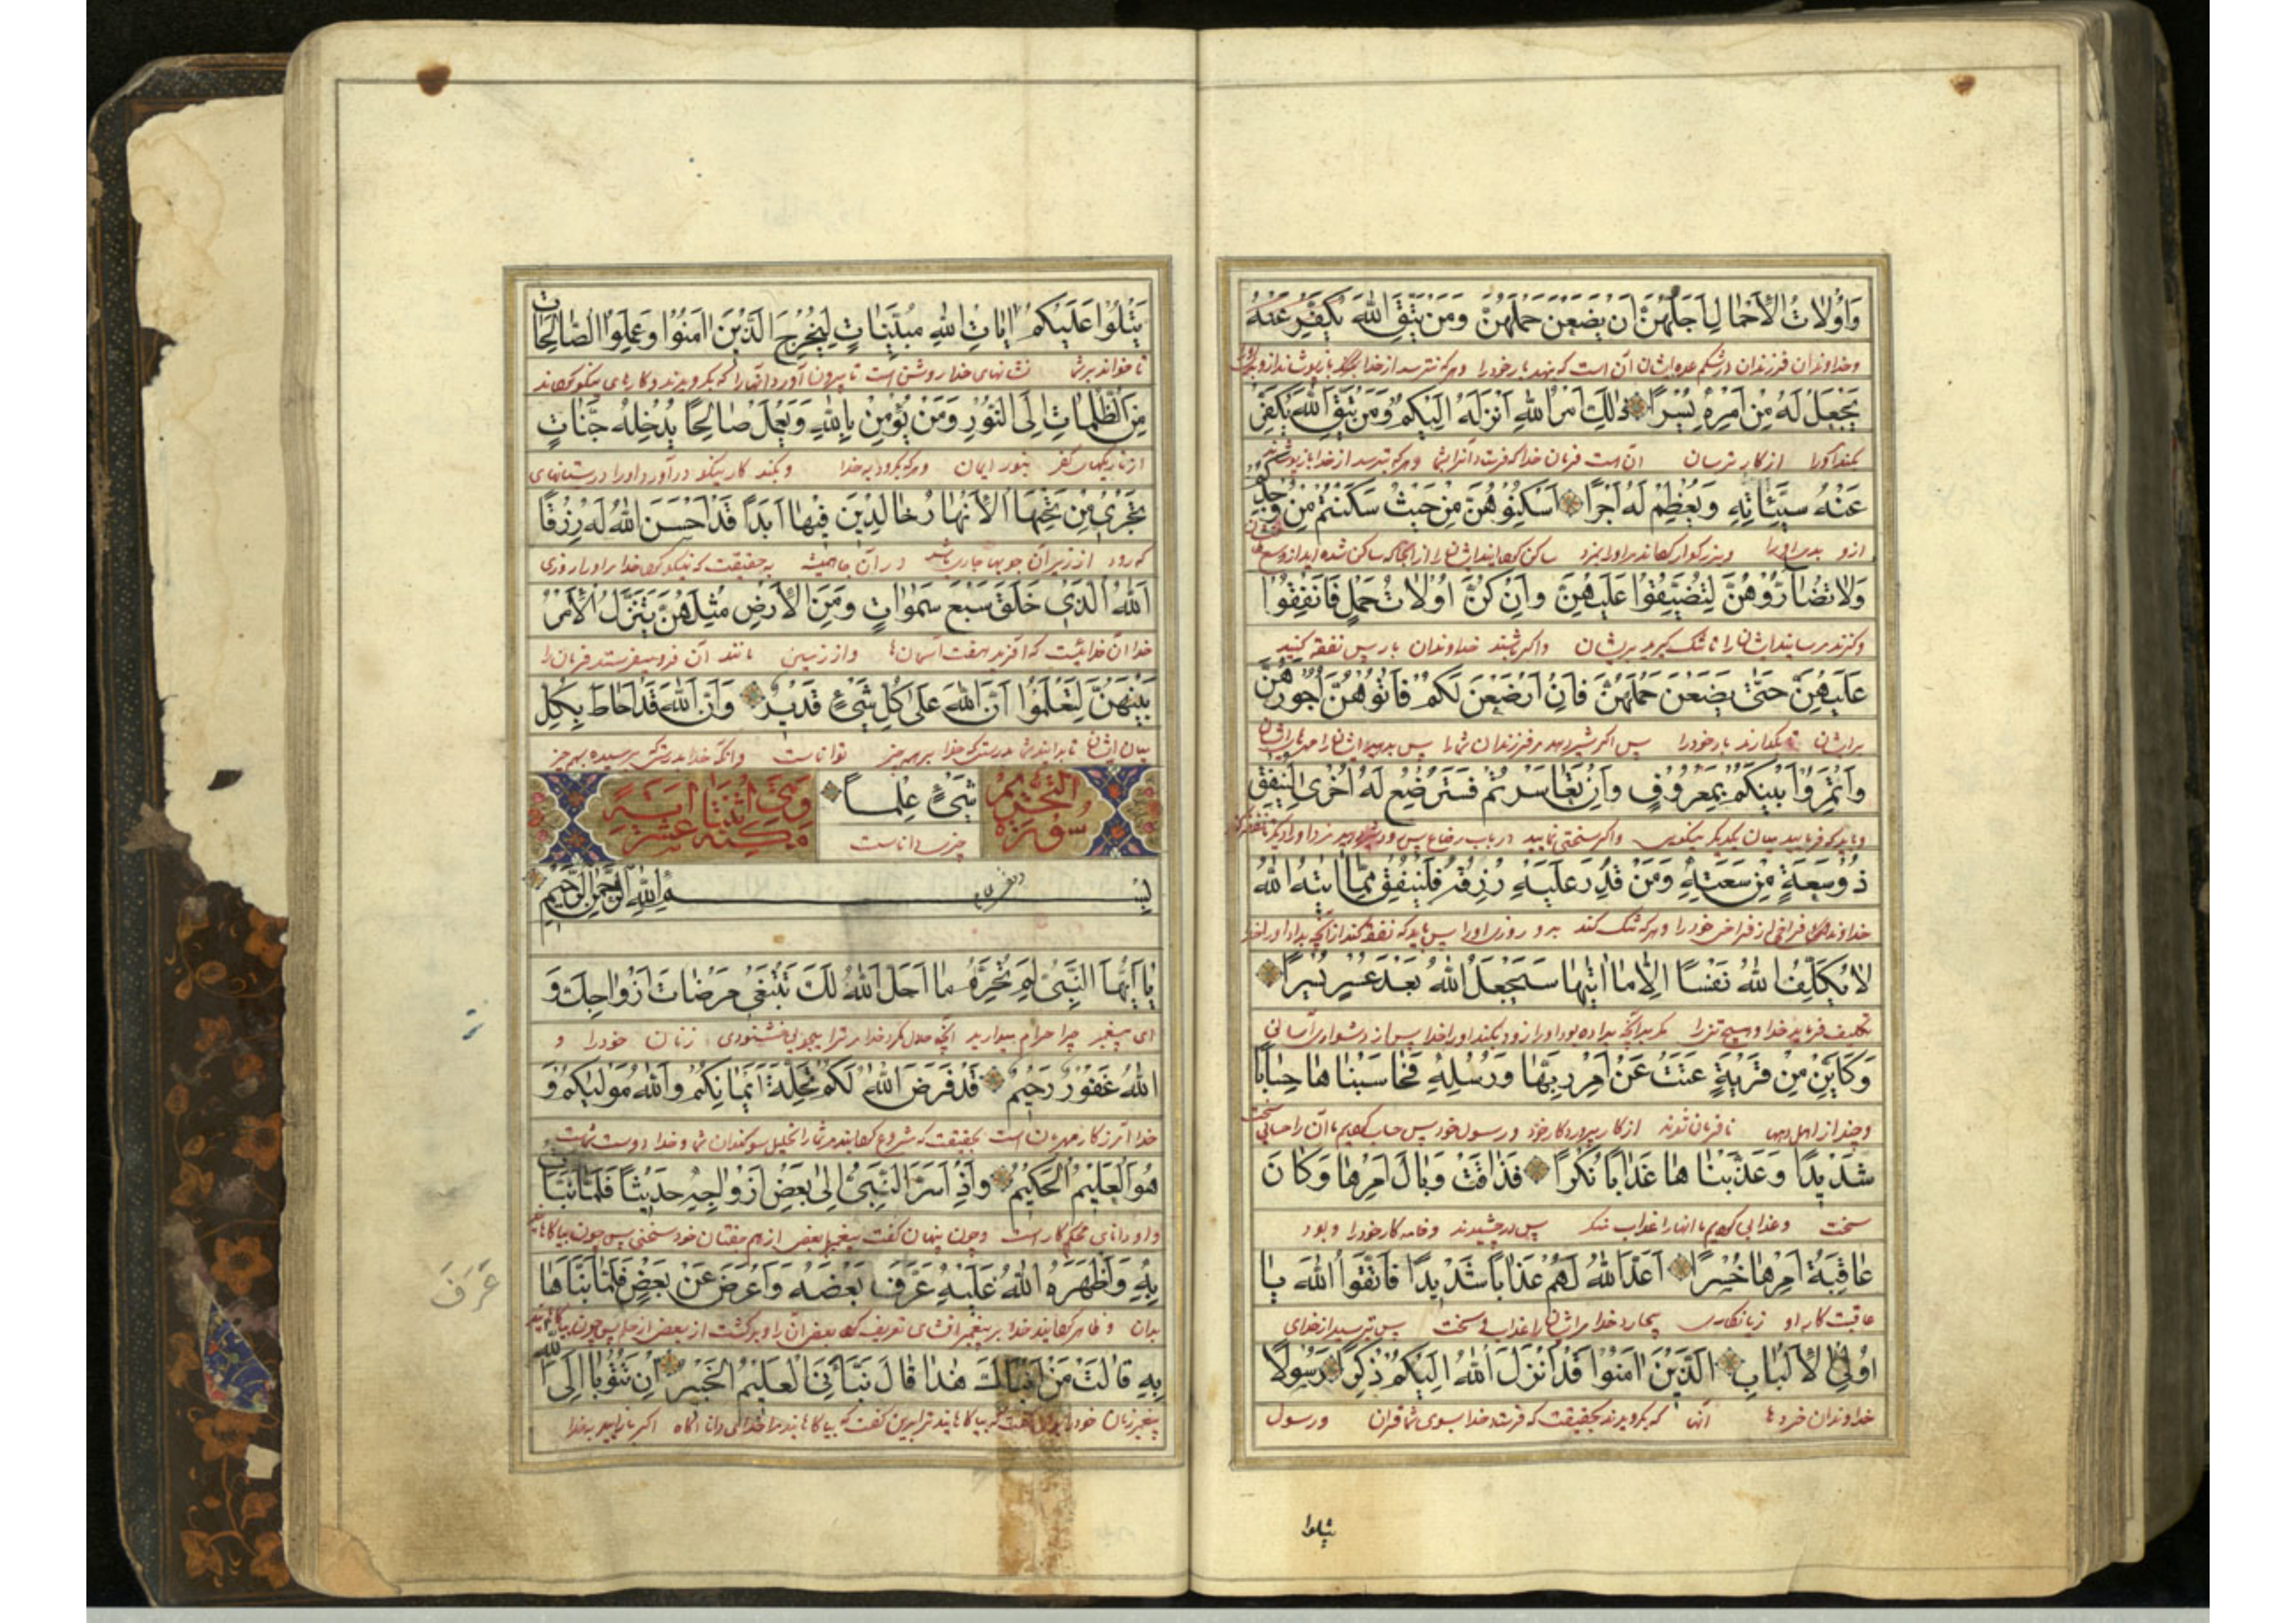 وَاُولَاتُ الْاَحْمَالِ اَجَلُهُنَّ اَنْ يَضَعْنَ حَمْلَهُنَّ وَمَنْ يَتَّقِ اللّٰهَ يُكَفِّرْ عَنْهُ
وخداوندان فرزندان در شکم عده ایشان آن است که بنهند بار خود را و هر که بترسد از خدا
يَجْعَلْ لَهُ مِنْ اَمْرِهِ يُسْرًا ذٰلِكَ اَمْرُ اللّٰهِ اَنْزَلَهُ اِلَيْكُمْ وَمَنْ يَتَّقِ اللّٰهَ يُكَفِّرْ
از کار آن است فرمان خدا که فرستاد آنرا بشما و هر که بترسد از خدا
عَنْهُ سَيِّئَاتِهِ وَيُعْظِمْ لَهُ اَجْرًا اَسْكِنُوهُنَّ مِنْ حَيْثُ سَكَنْتُمْ مِنْ وُجْدِكُمْ
ازو بدی او را و بزرگ او را مزد ساکن ایشان را از آنجا که ساکن شده اید از وسع
وَلَا تُضَارُّوهُنَّ لِتُضَيِّقُوا عَلَيْهِنَّ وَاِنْ كُنَّ اُولَاتِ حَمْلٍ فَاَنْفِقُوا
و گزند مرسانید ایشان را تا تنک گیرید بر ایشان و اگر باشند خداوندان بار پس نفقه کنید
عَلَيْهِنَّ حَتّٰى يَضَعْنَ حَمْلَهُنَّ فَاِنْ اَرْضَعْنَ لَكُمْ فَاٰتُوهُنَّ اُجُورَهُنَّ
بر ایشان تا بگذارند بار خود را پس اگر شیر دهند مر فرزندان شما را پس بدهید ایشان را
وَأْتَمِرُوا بَيْنَكُمْ بِمَعْرُوفٍ وَاِنْ تَعَاسَرْتُمْ فَسَتُرْضِعُ لَهُ اُخْرٰى لِيُنْفِقْ
میان یکدیگر بنیکویی و اگر سختی نمایید در باب رضاع پس
ذُو سَعَةٍ مِنْ سَعَتِهِ وَمَنْ قُدِرَ عَلَيْهِ رِزْقُهُ فَلْيُنْفِقْ مِمَّا اٰتٰيهُ اللّٰهُ
فراخی از فراخی خود را و هر که تنک کند برو روزی او را پس باید که نفقه کند از آنچه
لَا يُكَلِّفُ اللّٰهُ نَفْسًا اِلَّا مَا اٰتٰيهَا سَيَجْعَلُ اللّٰهُ بَعْدَ عُسْرٍ يُسْرًا
تکلیف نفرماید خدا هیچ تن را مگر بدانچه پس از دشواری آسانی
وَكَاَيِّنْ مِنْ قَرْيَةٍ عَتَتْ عَنْ اَمْرِ رَبِّهَا وَرُسُلِهِ فَحَاسَبْنَاهَا حِسَابًا
و چند از اهل دیهی از کار پروردکار خود و رسول خود پس
شَدِيدًا وَعَذَّبْنَاهَا عَذَابًا نُكْرًا فَذَاقَتْ وَبَالَ اَمْرِهَا وَكَانَ
سخت و عذابی کردیم ما آنها را عذاب منکر پس بچشیدند کار خود را و بود
عَاقِبَةُ اَمْرِهَا خُسْرًا اَعَدَّ اللّٰهُ لَهُمْ عَذَابًا شَدِيدًا فَاتَّقُوا اللّٰهَ يَا
عاقبت کار او زیانکاری خدا مر ایشان را عذاب سخت پس بترسید از خدای
اُولِى الْاَلْبَابِ الَّذِينَ اٰمَنُوا قَدْ اَنْزَلَ اللّٰهُ اِلَيْكُمْ ذِكْرًا رَسُولًا
خداوندان خردها آنها که بگرویدند بحقیقت که فرستاد خدا بسوی شما قران و رسول
يتلوا
يَتْلُوا عَلَيْكُمْ اٰيَاتِ اللّٰهِ مُبَيِّنَاتٍ لِيُخْرِجَ الَّذِينَ اٰمَنُوا وَعَمِلُوا الصَّالِحَاتِ
تا خواند بر شما نشانهای خدا روشن است تا بیرون آورد آنها را که بگرویدند و کارهای نیکو
مِنَ الظُّلُمَاتِ اِلَى النُّورِ وَمَنْ يُؤْمِنْ بِاللّٰهِ وَيَعْمَلْ صَالِحًا يُدْخِلْهُ جَنَّاتٍ
از تاریکیهای کفر بنور ایمان و هر که بگرود به خدا و بکند کار نیکو در آورد او را در بستانهای
تَجْرِى مِنْ تَحْتِهَا الْاَنْهَارُ خَالِدِينَ فِيهَا اَبَدًا قَدْ اَحْسَنَ اللّٰهُ لَهُ رِزْقًا
که رود از زیر آن جویها جاری باشد در آن جا همیشه به حقیقت که نیکو خدا مر او را روزی
اَللّٰهُ الَّذِى خَلَقَ سَبْعَ سَمٰوَاتٍ وَمِنَ الْاَرْضِ مِثْلَهُنَّ يَتَنَزَّلُ الْاَمْرُ
خدا آن خدائیست که آفرید هفت آسمان‌ها و از زمین مانند آن فرو میفرستد فرمان را
بَيْنَهُنَّ لِتَعْلَمُوا اَنَّ اللّٰهَ عَلٰى كُلِّ شَىْءٍ قَدِيرٌ وَاَنَّ اللّٰهَ قَدْ اَحَاطَ بِكُلِّ
میان ایشان تا بدانید بدرستی که خدا بر همه چیز توانا است و آنکه خدا بدرستی که برسیده به همه چیز
شَىْءٍ عِلْمًا
چیزی دانا است
سورة التحريم
وهى اثنتا عشر اية مكية
بِسْمِ اللّٰهِ الرَّحْمٰنِ الرَّحِيمِ
يَا اَيُّهَا النَّبِىُّ لِمَ تُحَرِّمُ مَا اَحَلَّ اللّٰهُ لَكَ تَبْتَغِى مَرْضَاتَ اَزْوَاجِكَ وَ
ای پیغمبر چرا حرام میدارید آنچه حلال کرد خدا مر ترا میجویی خشنودی زنان خود را و
اللّٰهُ غَفُورٌ رَحِيمٌ قَدْ فَرَضَ اللّٰهُ لَكُمْ تَحِلَّةَ اَيْمَانِكُمْ وَاللّٰهُ مَوْلٰيكُمْ وَ
خدا آمرزکار مهربان است بحقیقت که مر شما را تحلیل سوگندان شما و خدا دوست شماست
هُوَ الْعَلِيمُ الْحَكِيمُ وَاِذْ اَسَرَّ النَّبِىُّ اِلٰى بَعْضِ اَزْوَاجِهِ حَدِيثًا فَلَمَّا نَبَّاَتْ
و او دانای محکم کار است و چون پنهان گفت پیغمبر با بعضی از هم جفتان خود سخنی پس چون
بِهِ وَاَظْهَرَهُ اللّٰهُ عَلَيْهِ عَرَّفَ بَعْضَهُ وَاَعْرَضَ عَنْ بَعْضٍ فَلَمَّا نَبَّاَهَا
بدان و ظاهر خدا بر پیغمبر افشای تعریف بعضی آن را و برگشت از بعضی
عَرَّفَ
بِهِ قَالَتْ مَنْ اَنْبَاَكَ هٰذَا قَالَ نَبَّاَنِىَ الْعَلِيمُ الْخَبِيرُ اِنْ تَتُوبَا اِلَى اللّٰهِ
پیغمبر زنان خود را ترا بدین گفت که مرا خدای دانا آگاه اگر باز آیید بخدا